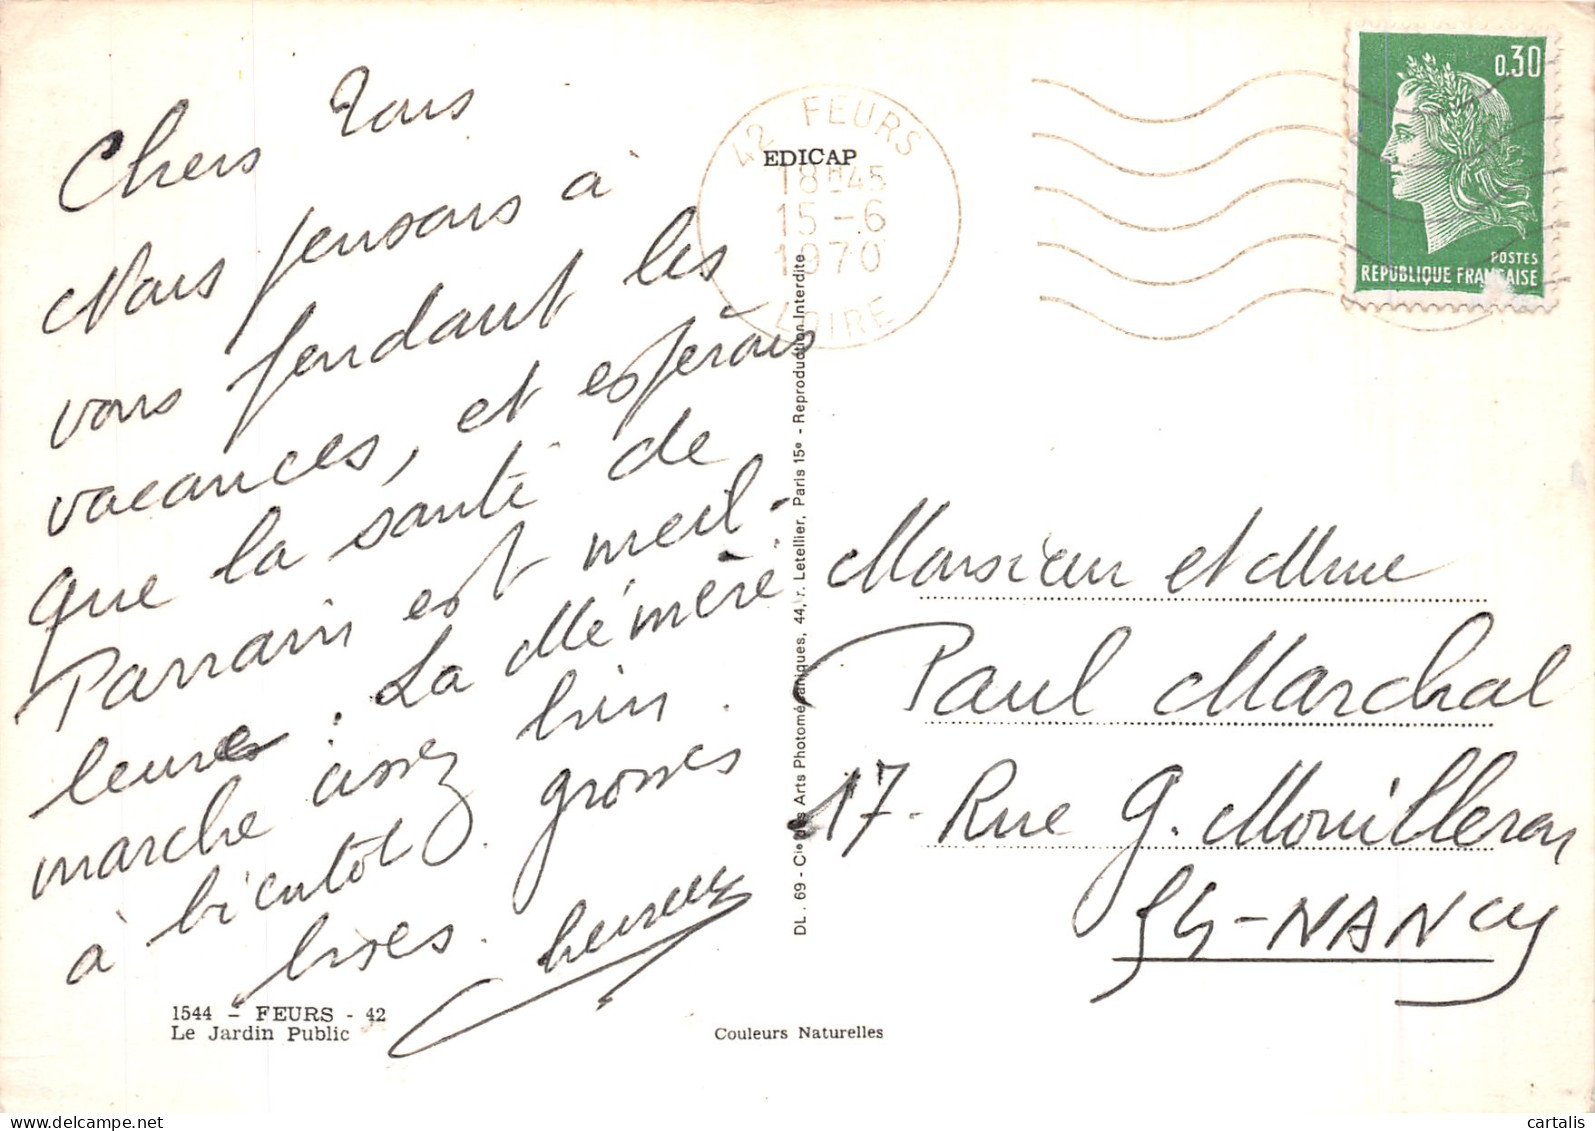 Chers Tous
Nous pensons a
vous pendant les
vacances, et espérons
que la santé de
Parrain est meil-
leure. La Mémère
marche assez bien.
à bientôt. grosses
bises.
1544 - FEURS - 42
Le Jardin Public
EDICAP
42 FEURS
18H45
15-6
1970
LOIRE
DL. 69 - Cie des Arts Photomécaniques, 44, r. Letellier, Paris 15e - Reproduction Interdite
Couleurs Naturelles
0.30
POSTES
REPUBLIQUE FRANÇAISE
Monsieur et Mme
Paul Marchal
17-Rue G. Mouilleron
54-NANCY
cartalis
delcampe.net